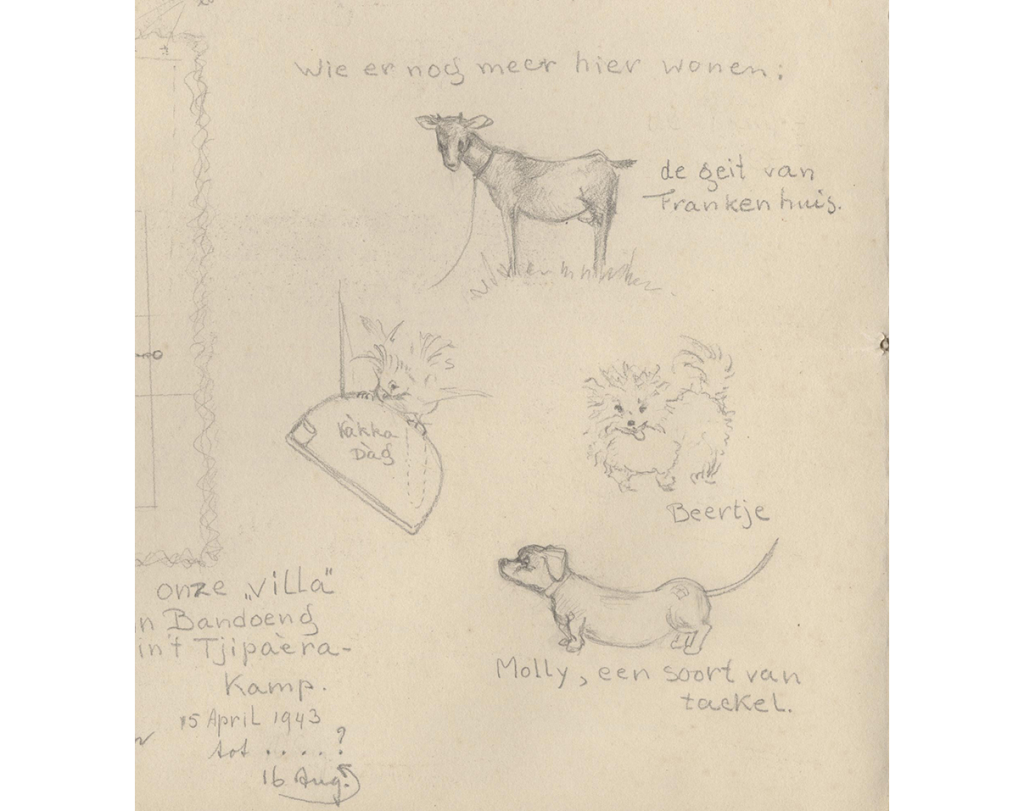 Wie er nog meer hier wonen:
de geit van
Frankenhuis.
Vàkka
Dàg
Beertje
Molly, een soort van
tackel.
onze „villa"
in't Tjipaèra-
Bandoeng
Kamp.
15 April 1943
tot .....?
16 Aug.